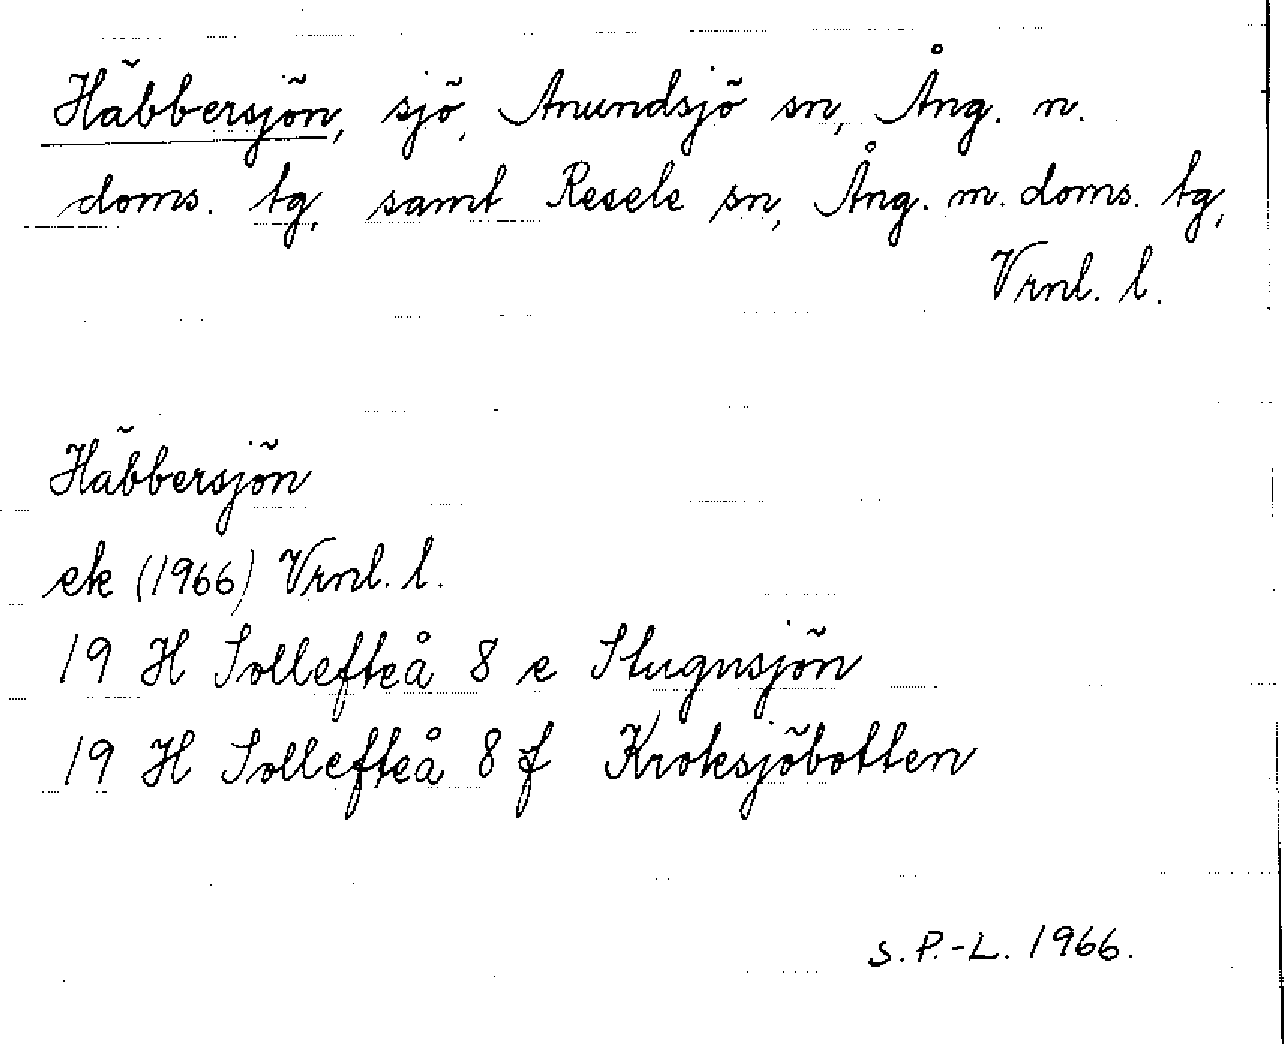 Häbbersjön, sjö, Anundsjö sn, Ång. n.
doms. tg, samt Resele sn, Ång. m. doms. tg,
Vrnl. l.
Häbbersjön
ek (1966) Vrnl. l.
19 H Sollefteå 8 e Stugusjön
19 H Sollefteå 8 f Kroksjöbotten
S. P.-L. 1966.